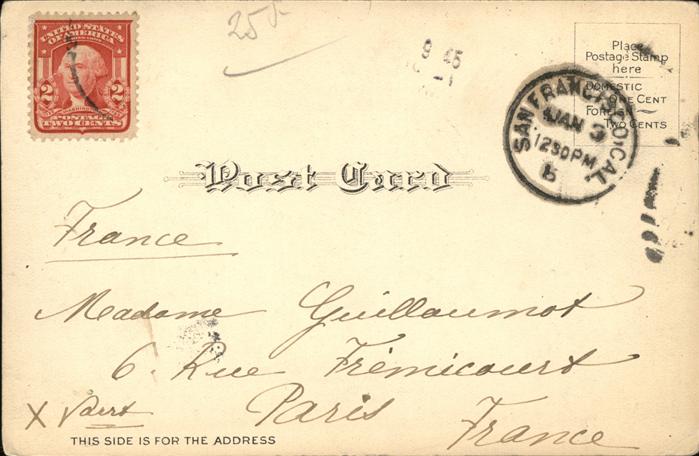 25
UNITED STATES
OF AMERICA
2 2
POSTAGE
TWO CENTS
Place
Postage Stamp
here
DOMESTIC
One Cent
For
Two Cents
SAN FRANCISCO, CAL.
JAN 3
1230 PM
Post Card
France
Madame Guillaumot
6. Rue Frémicourt
X Paris
France
THIS SIDE IS FOR THE ADDRESS